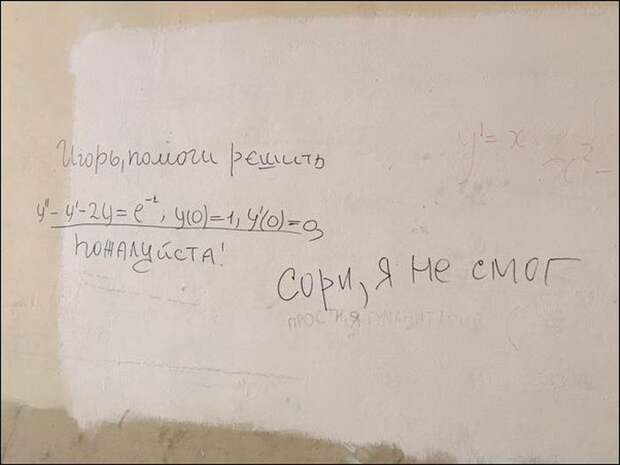 Игорь, помоги решить
y''-y'-2y=e⁻ᵗ; y(0)=1, y'(0)=0
пожалуйста!
y'=x x²-
Сори, я не смог
прости, я гуманитарий